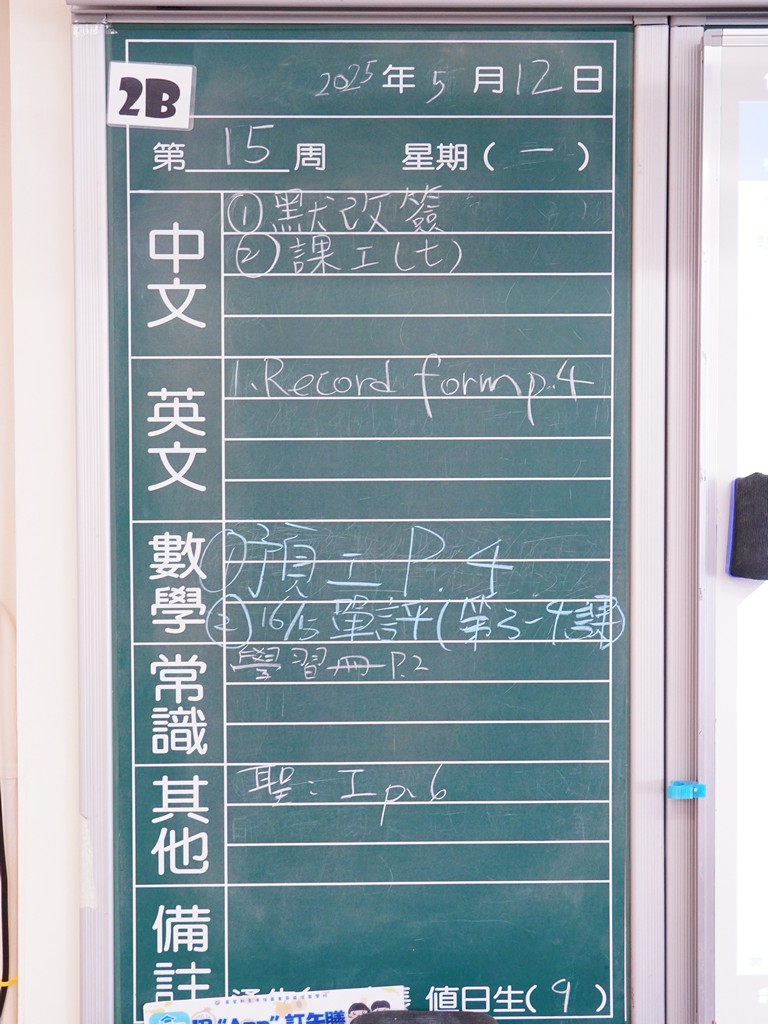 2B
2025年5月12日
第15周 星期(一)
中文
①默改簽
②課工(七)
英文
1.Record form p.4
數學
①預工P.4
②16/5單評(第3-4課)
常識
學習冊P.2
其他
聖:工p.6
備註
值日生(9)
"App"訂午膳